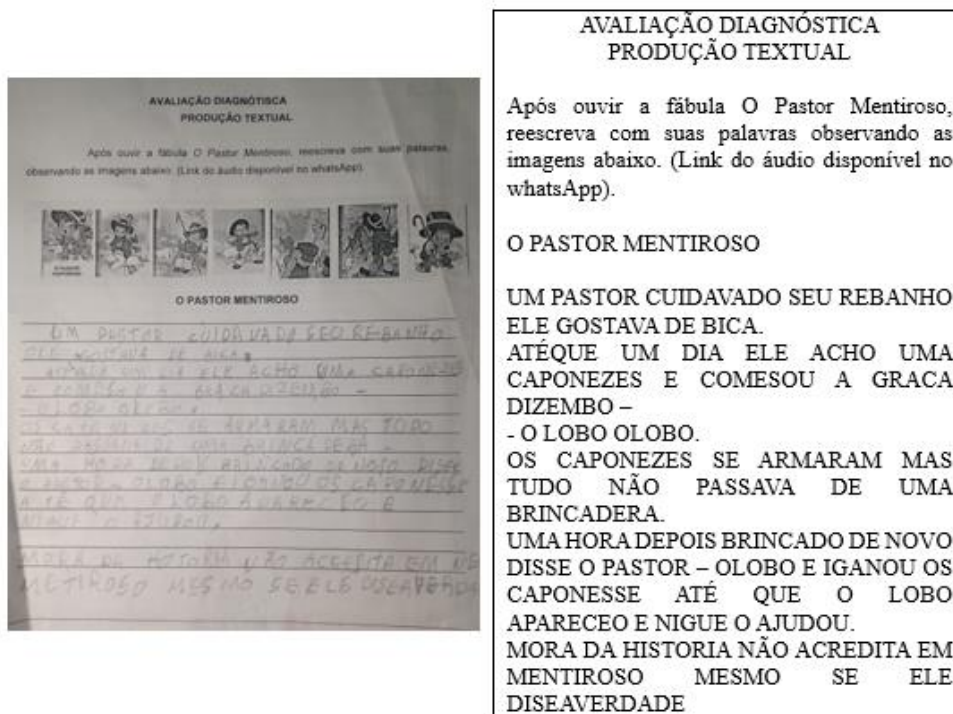 AVALIAÇÃO DIAGNÓTISCA
PRODUÇÃO TEXTUAL
Após ouvir a fábula O Pastor Mentiroso, reescreva com suas palavras,
observando as imagens abaixo. (Link do áudio disponível no whatsApp).
O PASTOR MENTIROSO
UM PASTOR CUIDAVADO SEU REBANHO
ELE GOSTAVA DE BICA.
ATÉQUE UM DIA ELE ACHO UMA CAPONEZES
E COMESOU A GRACA DIZEMBO -
- O LOBO OLOBO.
OS CAPONEZES SE ARMARAM MAS TODO
NÃO PASSAVA DE UMA BRINCADERA -
UMA HORA DEPOIS BRINCADO DE NOVO DISSE
O PASTOR - OLOBO E IGANOU OS CAPONESSE
ATÉ QUE O LOBO APARECEO E
NIGUE O AJUDOU.
MORA DA HISTORIA NÃO ACREDITA EM ME
METIROSO MESMO SE ELE DISEAVERDA
AVALIAÇÃO DIAGNÓSTICA
PRODUÇÃO TEXTUAL
Após ouvir a fábula O Pastor Mentiroso,
reescreva com suas palavras observando as
imagens abaixo. (Link do áudio disponível no
whatsApp).
O PASTOR MENTIROSO
UM PASTOR CUIDAVADO SEU REBANHO
ELE GOSTAVA DE BICA.
ATÉQUE UM DIA ELE ACHO UMA
CAPONEZES E COMESOU A GRACA
DIZEMBO –
- O LOBO OLOBO.
OS CAPONEZES SE ARMARAM MAS
TUDO NÃO PASSAVA DE UMA
BRINCADERA.
UMA HORA DEPOIS BRINCADO DE NOVO
DISSE O PASTOR – OLOBO E IGANOU OS
CAPONESSE ATÉ QUE O LOBO
APARECEO E NIGUE O AJUDOU.
MORA DA HISTORIA NÃO ACREDITA EM
MENTIROSO MESMO SE ELE
DISEAVERDADE